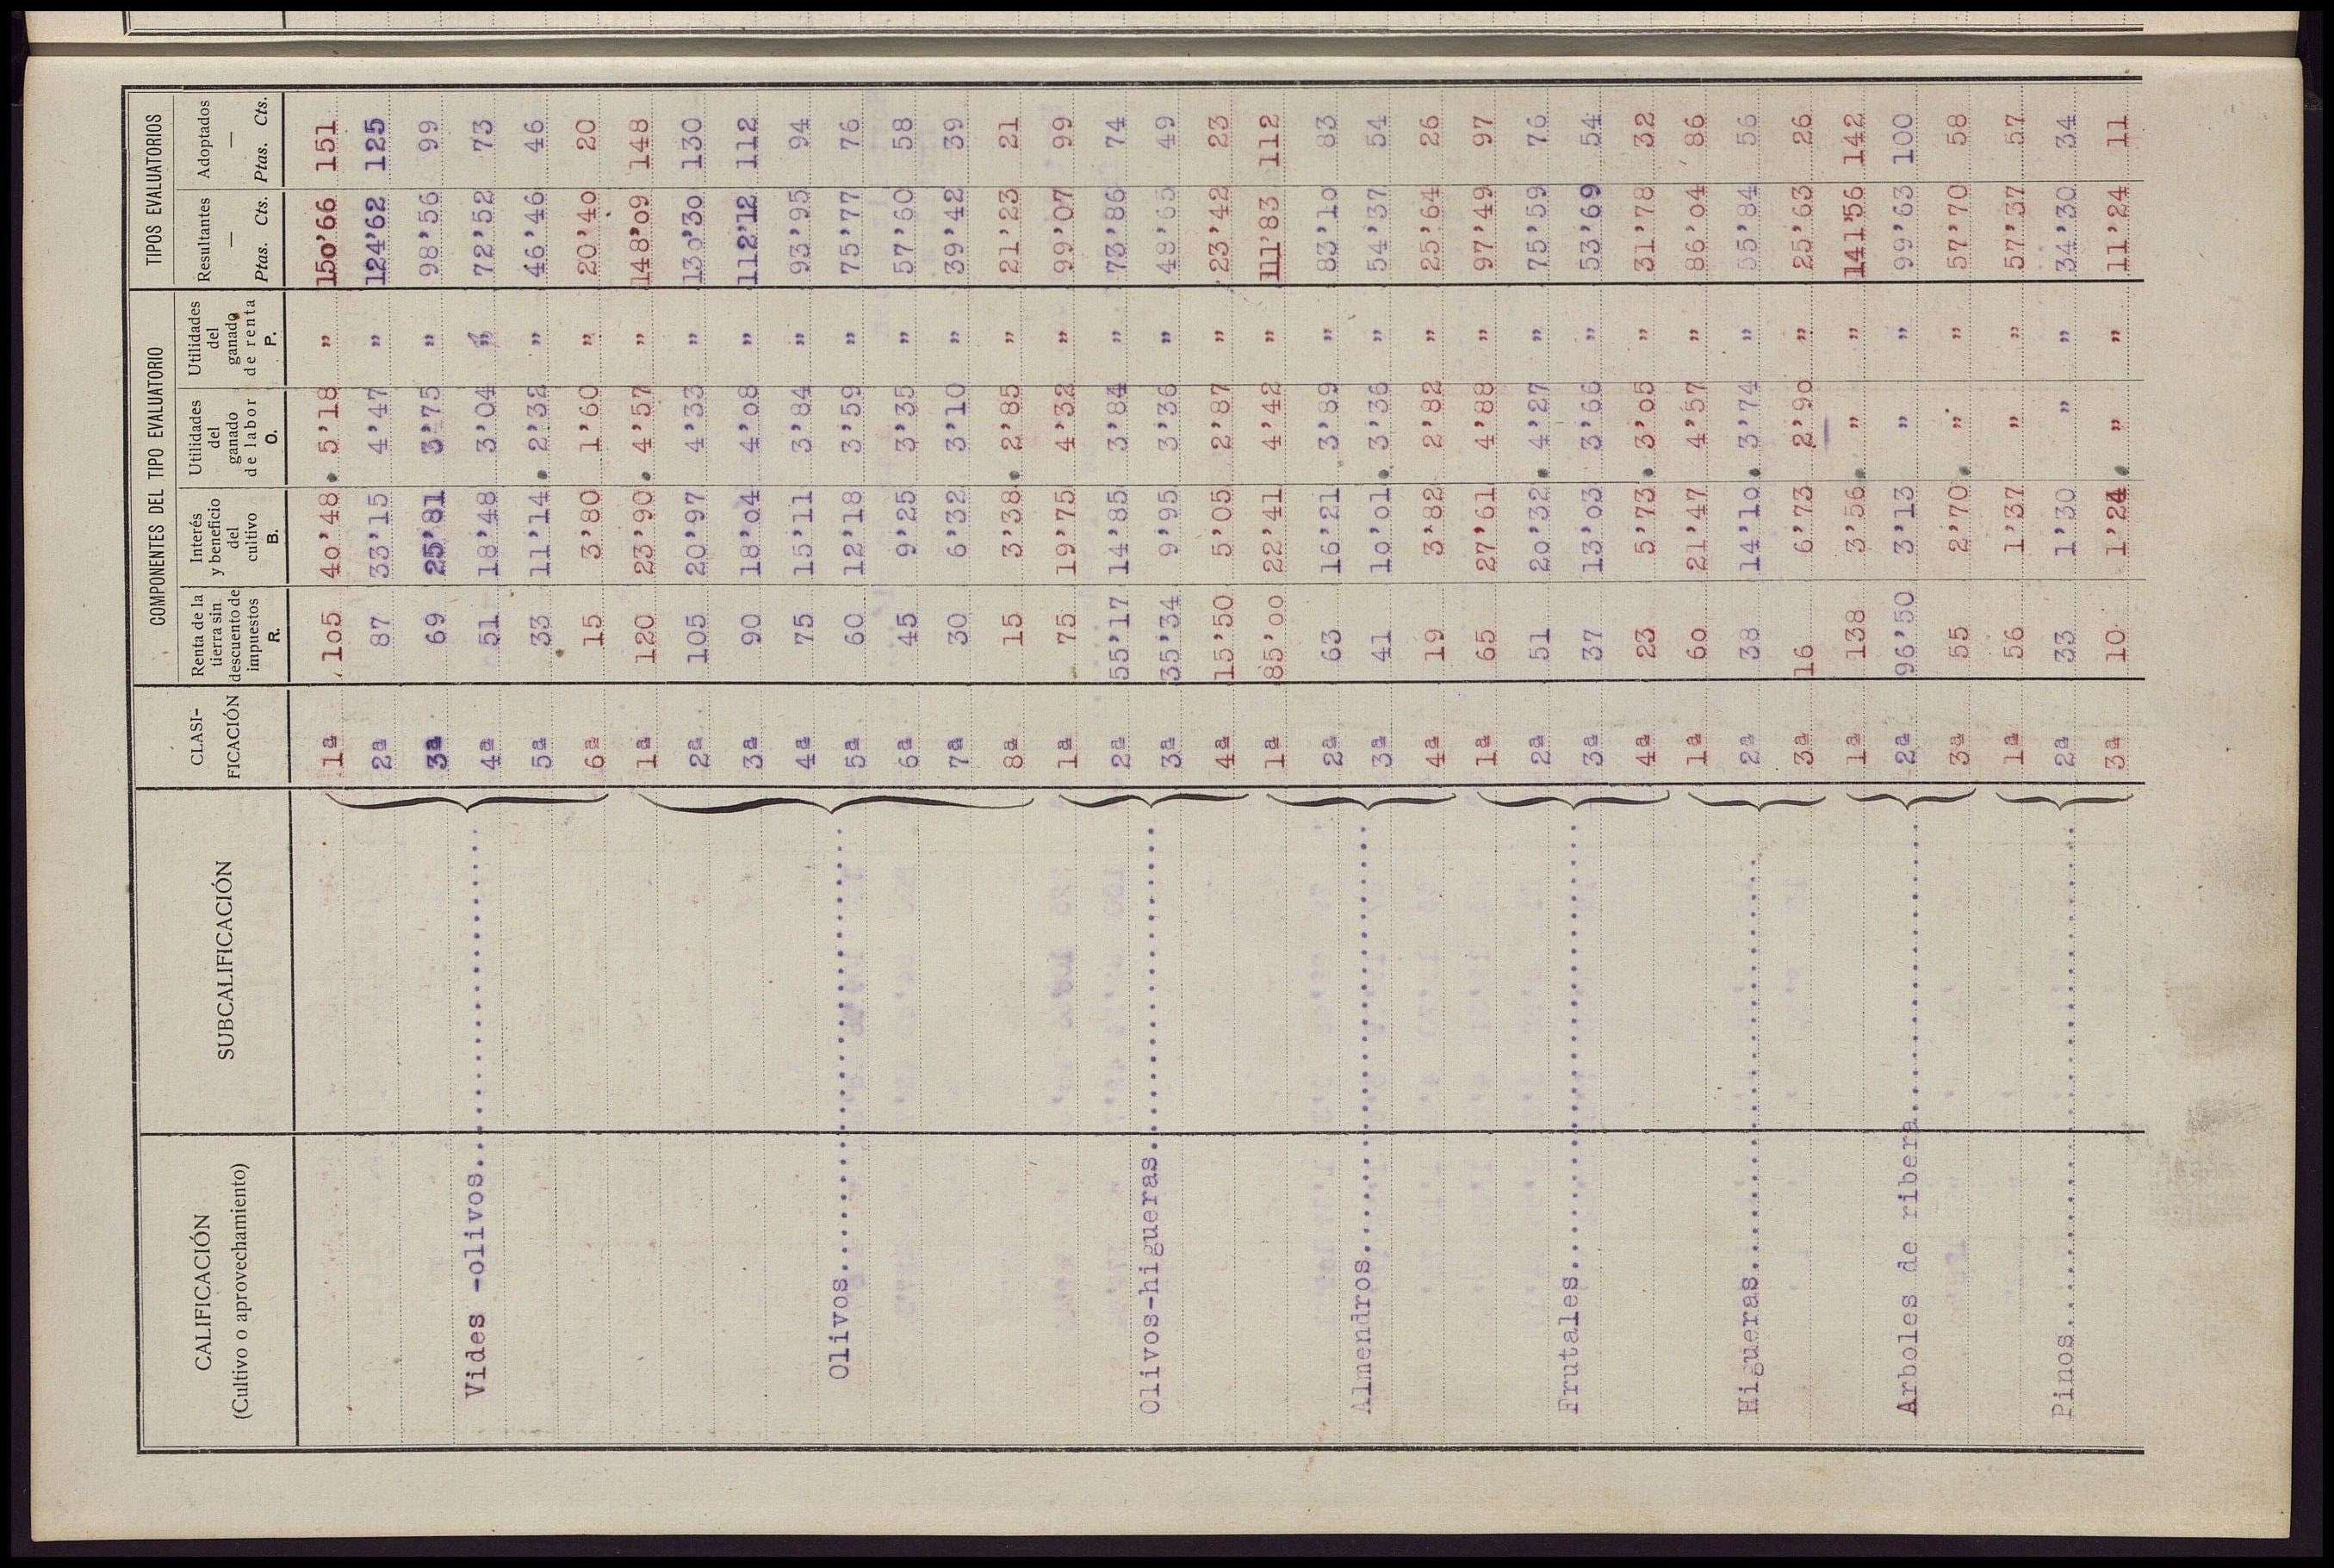 CALIFICACIÓN (Cultivo o aprovechamiento) SUBCALIFICACIÓN CLASI-FICACIÓN COMPONENTES DEL TIPO EVALUATORIO TIPOS EVALUATORIOS
Renta de la tierra sin descuento de impuestos R. Interés y beneficio del cultivo B. Utilidades del ganado de labor O. Utilidades del ganado de renta P. Resultantes — Ptas. Cts. Adoptados — Ptas. Cts.
1ª 105 40'48 5'18 " 150'66 151
2ª 87 33'15 4'47 " 124'62 125
3ª 69 25'81 3'75 " 98'56 99
Vides -olivos 4ª 51 18'48 3'04 " 72'52 73
5ª 33 11'14 2'32 " 46'46 46
6ª 15 3'80 1'60 " 20'40 20
1ª 120 23'90 4'57 " 148'09 148
2ª 105 20'97 4'33 " 130'30 130
3ª 90 18'04 4'08 " 112'12 112
4ª 75 15'11 3'84 " 93'95 94
Olivos 5ª 60 12'18 3'59 " 75'77 76
6ª 45 9'25 3'35 " 57'60 58
7ª 30 6'32 3'10 " 39'42 39
8ª 15 3'38 2'85 " 21'23 21
1ª 75 19'75 4'32 " 99'07 99
2ª 55'17 14'85 3'84 " 73'86 74
Olivos-higueras 3ª 35'34 9'95 3'36 " 48'65 49
4ª 15'50 5'05 2'87 " 23'42 23
1ª 85'00 22'41 4'42 " 111'83 112
2ª 63 16'21 3'89 " 83'10 83
Almendros 3ª 41 10'01 3'36 " 54'37 54
4ª 19 3'82 2'82 " 25'64 26
1ª 65 27'61 4'88 " 97'49 97
2ª 51 20'32 4'27 " 75'59 76
Frutales 3ª 37 13'03 3'66 " 53'69 54
4ª 23 5'73 3'05 " 31'78 32
1ª 60 21'47 4'57 " 86'04 86
Higueras 2ª 38 14'10 3'74 " 55'84 56
3ª 16 6'73 2'90 " 25'63 26
1ª 138 3'56 " " 141'56 142
Arboles de ribera 2ª 96'50 3'13 " " 99'63 100
3ª 55 2'70 " " 57'70 58
1ª 56 1'37 " " 57'37 57
Pinos 2ª 33 1'30 " " 34'30 34
3ª 10 1'24 " " 11'24 11